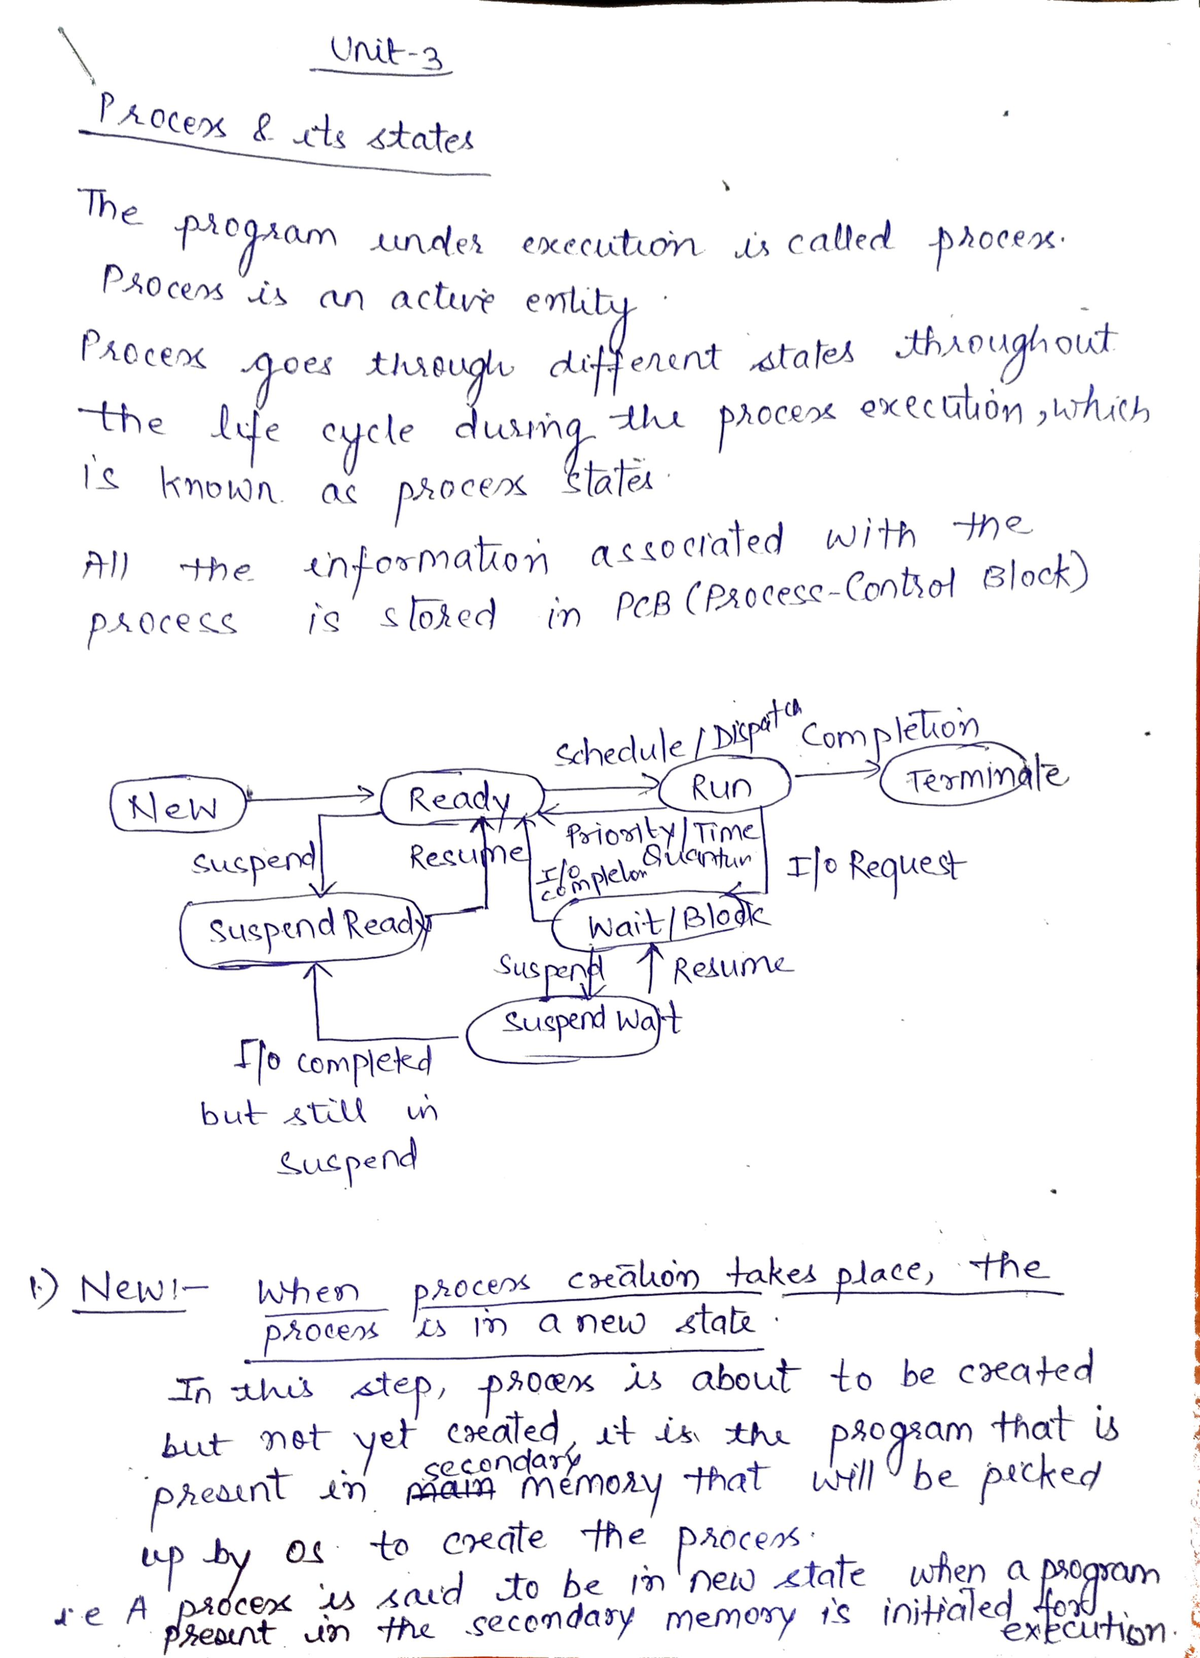 Unit-3
Process & its states
The program under execution is called process.
Process is an active entity.
Process goes through different states throughout
the life cycle during the process execution, which
is known as process states.
All the information associated with the
process is stored in PCB (Process-Control Block)
Schedule / Dispatch Completion
New Ready Run Terminate
Suspend Resume Priority/Time
Quantun
I/o
completon
I/o Request
Suspend Ready Wait/Block
Suspend Resume
Suspend Wait
I/o completed
but still in
suspend
1.) New:- When process creation takes place, the
process is in a new state.
In this step, process is about to be created
but not yet created, it is the program that is
secondary
present in main memory that will be picked
up by os to create the process.
i.e A process is said to be in new state when a program
present in the secondary memory is initiated for
execution.